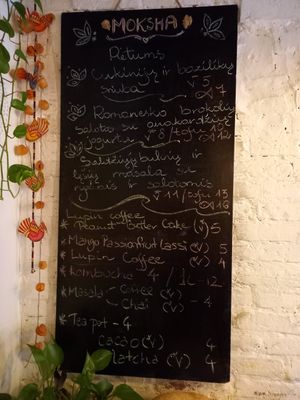 MOKSHA
Pietums
Cukinijų ir bazilikų
sriuba √ 5
7
Romanesko brokolių
salotos su avokadžių
jogurtu √ 8 / tofu 10
12
Saldžiųjų bulvių ir
lęšių masala su
ryžiais ir salotomis
√ 11 / tofu 13
16
* Lupin coffee
* Peanut Butter Cake (√) 5
* Mango Passionfruit Lassi (√) 5
* Lupin Coffee (√) 4
* Kombucha - 4 / 1L - 12
* Masala - Coffee (√)
- Chai (√) - 4
* Tea pot - 4
Cacao (√) 4
Matcha (√) 4